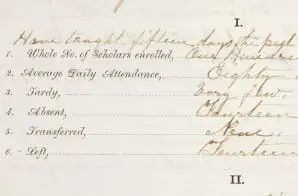 I.
Have taught fifteen days the past
1. Whole No. of Scholars enrolled, One Hundred
2. Average Daily Attendance, Eighty
3. Tardy, Very few.
4. Absent, Fourteen
5. Transferred, None.
6. Left, Fourteen
II.